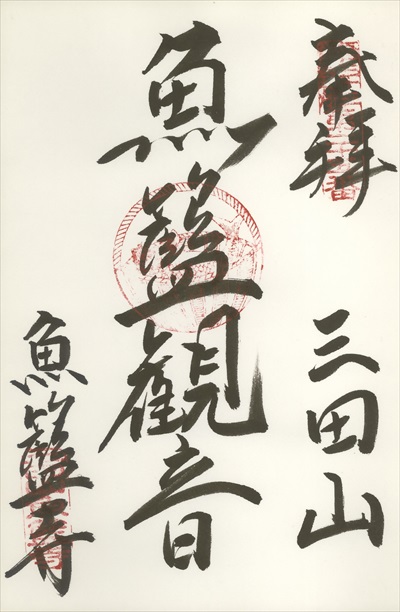 奉拝
三田山
魚籃観音
魚籃寺